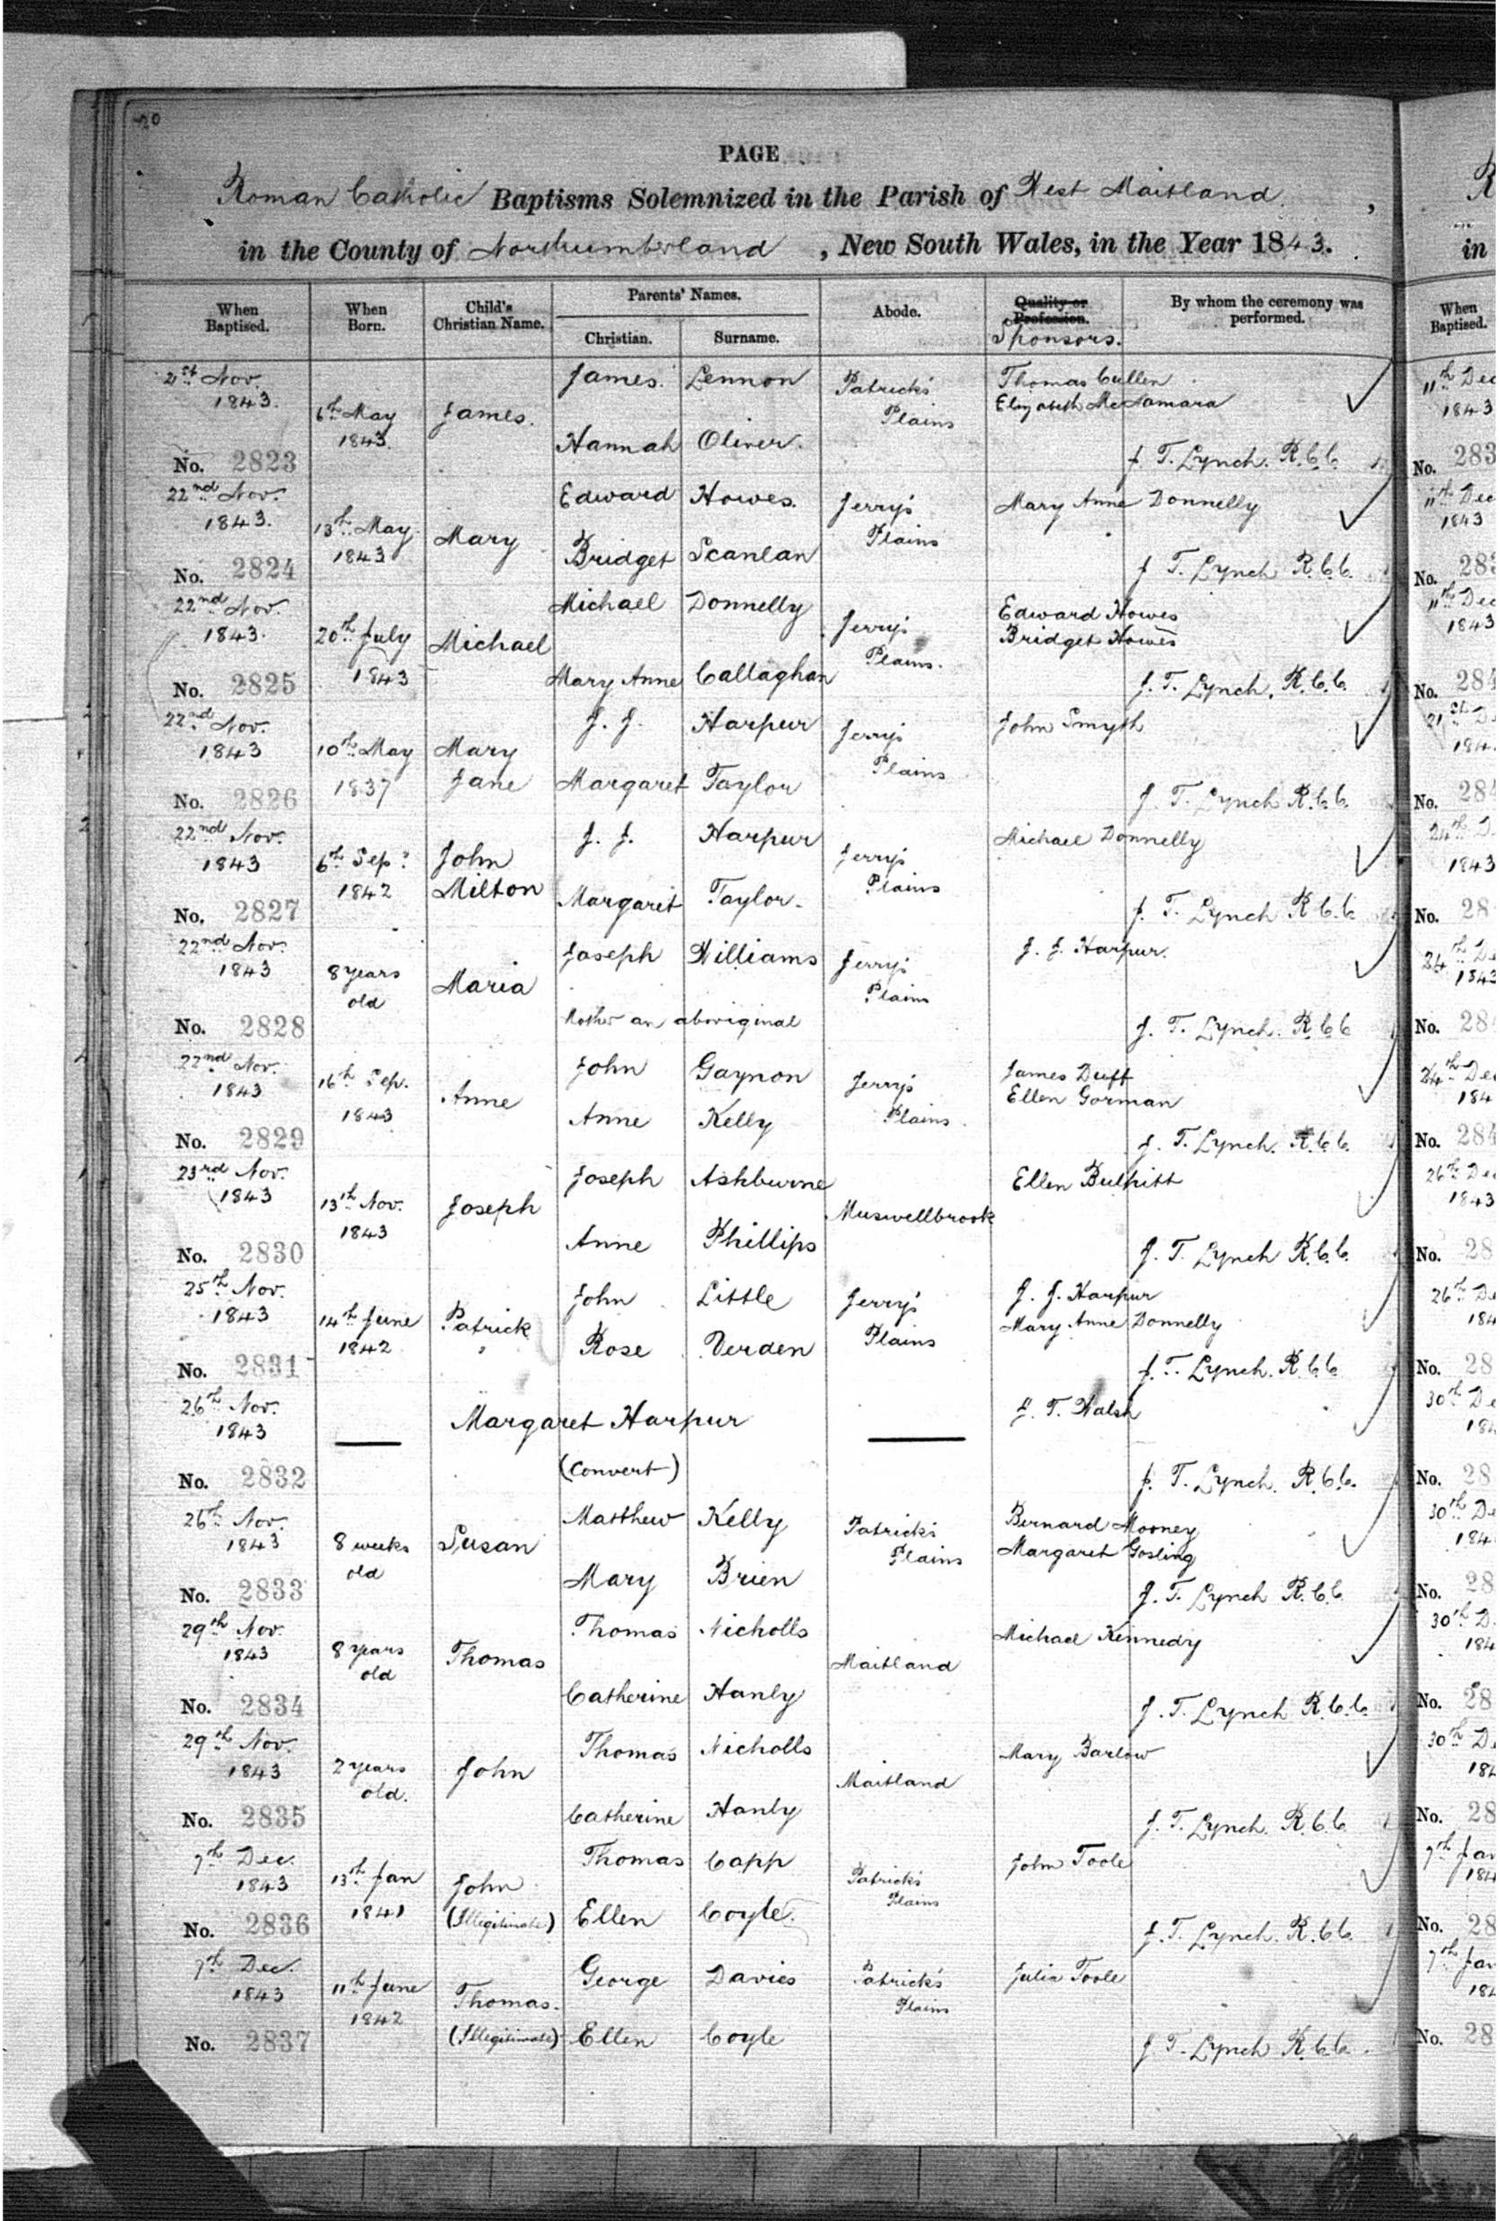 20
PAGE
Roman Catholic Baptisms Solemnized in the Parish of West Maitland,
in the County of Northumberland, New South Wales, in the Year 1843.
When Baptised. When Born. Child's Christian Name. Parents' Names. Christian. Surname. Abode. Quality or Profession. Sponsors. By whom the ceremony was performed.
21st Nov. James Lennon Patrick's Thomas Cullen
1843. 6th May James. Plains Elizabeth McNamara
1843. Hannah Oliver.
No. 2823 J. T. Lynch. R.C.C.
22nd Nov. Edward Howes. Jerry's Mary Anne Donnelly
1843. 13th May Mary Plains
1843 Bridget Scanlan
No. 2824 J. T. Lynch R.C.C.
22nd Nov. Michael Donnelly Jerry's Edward Howes
1843. 20th July Michael Plains. Bridget Howes
1843 Mary Anne Callaghan
No. 2825 J. T. Lynch. R.C.C.
22nd Nov. J. J. Harpur Jerry's John Smyth
1843 10th May Mary Plains
1837 Jane Margaret Taylor
No. 2826 J. T. Lynch R.C.C.
22nd Nov. J. J. Harpur Jerry's Michael Donnelly
1843 6th Sep. John Plains
1842 Milton Margaret Taylor.
No. 2827 J. T. Lynch R.C.C.
22nd Nov. Joseph Williams Jerry's J. J. Harpur.
1843 8 years Maria Plains
old Mother an aboriginal
No. 2828 J. T. Lynch. R.C.C
22nd Nov. John Gaynon Jerry's James Duff
1843 16th Sep. Anne Plains. Ellen Gorman
1843 Anne Kelly
No. 2829 J. T. Lynch. R.C.C.
23rd Nov. Joseph Ashburne Ellen Bulpitt
1843 13th Nov. Joseph Muswellbrook
1843 Anne Phillips
No. 2830 J. T. Lynch R.C.C.
25th Nov. John Little Jerry's J. J. Harpur
1843 14th June Patrick Plains Mary Anne Donnelly
1842 Rose Verden
No. 2831 J. T. Lynch. R.C.C
26th Nov. Margaret Harpur T. Walsh
1843
(Convert)
No. 2832 J. T. Lynch. R.C.C.
26th Nov. Matthew Kelly Patrick's Bernard Mooney
1843 8 weeks Susan Plains Margaret Gosling
old Mary Brien
No. 2833 J. T. Lynch R.C.C.
29th Nov. Thomas Nicholls Michael Kennedy
1843 8 years Thomas Maitland
old Catherine Hanly
No. 2834 J. T. Lynch R.C.C.
29th Nov. Thomas Nicholls Mary Barlow
1843 2 years John Maitland
old. Catherine Hanly
No. 2835 J. T. Lynch. R.C.C.
7th Dec. Thomas Capp Patrick's John Toole
1843 13th Jan John Plains
1841 (Illegitimate) Ellen Coyle.
No. 2836 J. T. Lynch. R.C.C.
7th Dec. George Davies Patrick's Julia Toole
1843 11th June Thomas. Plains
1842 (Illegitimate) Ellen Coyle
No. 2837 J. T. Lynch R.C.C.
in
When Baptised.
11th Dec
1843
No. 283
11th Dec
1843
No. 283
11th Dec
1843
No. 284
184
No. 284
1843
No. 28
24th De
1843
No. 284
24th Dec
184
No. 284
26th Dec
1843
No. 28
26th De
184
No. 28
30th De
184
No. 28
30th De
184
No. 28
30th D
184
No. 28
30th De
184
No. 28
7th Jan
184
No. 28
7th Jan
184
No. 28